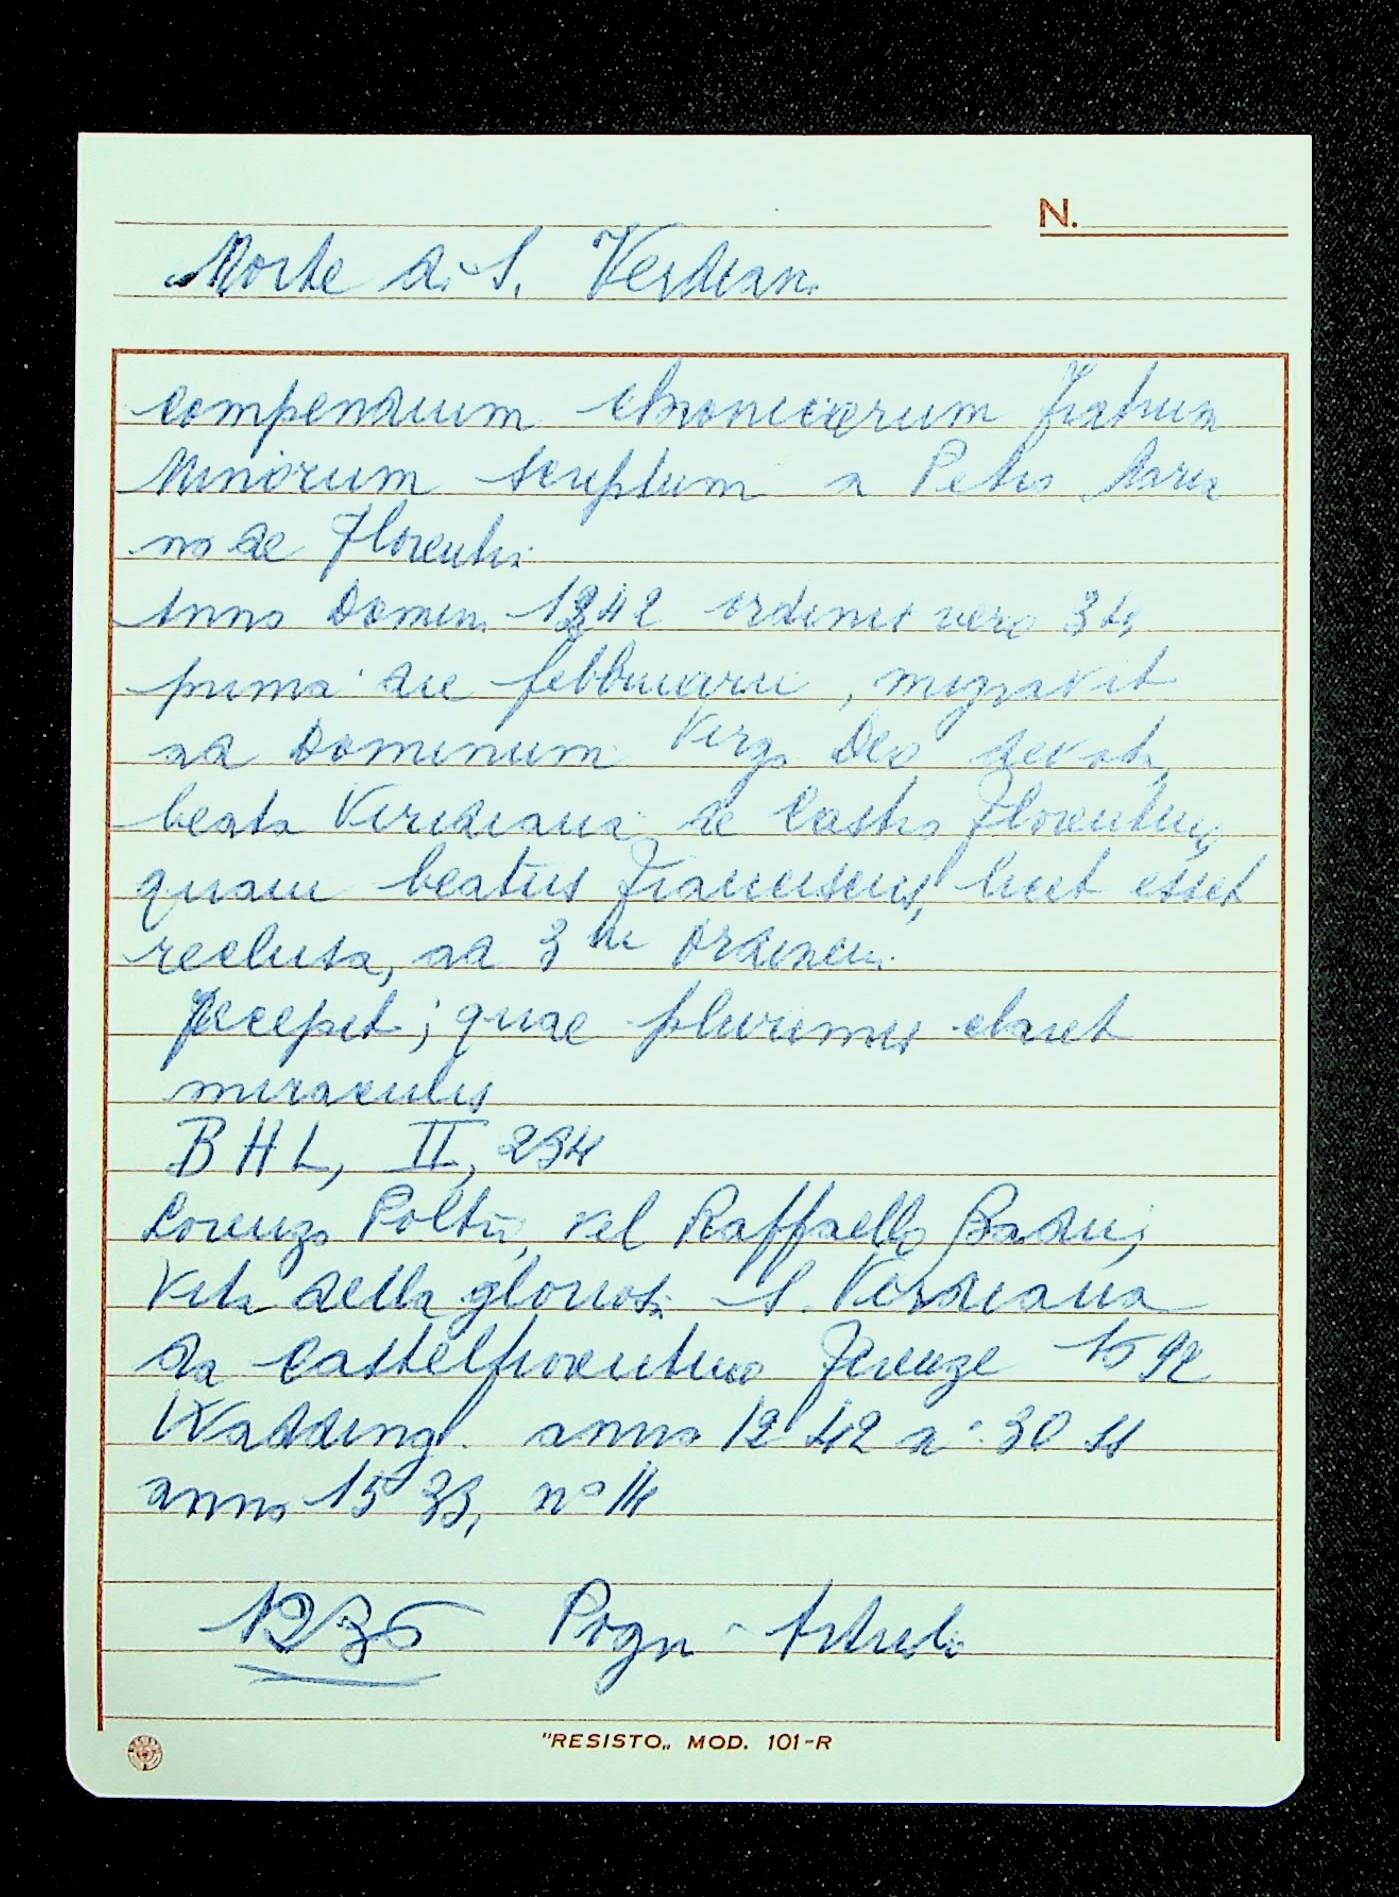 N.
Morte di S. Verdiana
Compendium chronicarum Fratrum
Minorum scriptum a Petro Maria
no de Florentia
Anno Domini 1242 ordinis vero 34
prima die febbruarii, migravit
ad Dominum Virgo Deo devota,
beata Viridiana de Castro Florentino,
quam beatus Franciscus, licet esset
reclusa, ad 3um Ordinem
recepit; quae plurimis claret
miraculis
BHL, II, 294
Lorenzo Polti, vel Raffaello Badii,
Vita della gloriosa S. Verdiana
da Castelfiorentino Firenze 1592
Wadding. anno 1242 n° 30 ss
anno 1533, n° 14
1236 Pogni -
"RESISTO„ MOD. 101-R